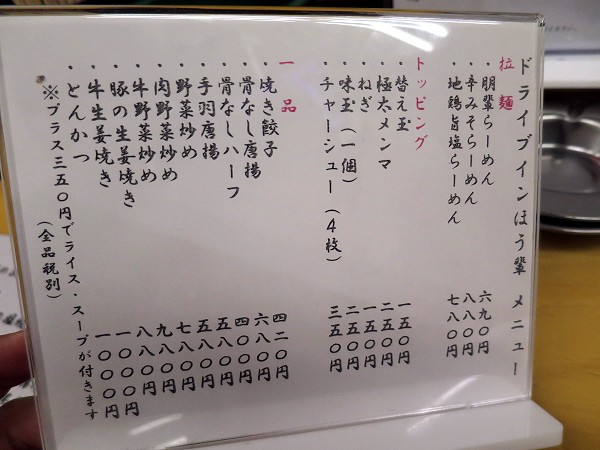 ドライブインほう輩 メニュー
拉麺
・朋輩らーめん 六九〇円
・辛みそらーめん 八八〇円
・地鶏旨塩らーめん 七八〇円
トッピング
・替え玉 一五〇円
・極太メンマ 二五〇円
・ねぎ 一五〇円
・味玉(一個) 二五〇円
・チャーシュー(4枚) 三五〇円
一品
・焼き餃子 四二〇円
・骨なし唐揚 六八〇円
・骨なしハーフ 四〇〇円
・手羽唐揚 五八〇円
・野菜炒め 五八〇円
・肉野菜炒め 七八〇円
・牛野菜炒め 九八〇円
・豚の生姜焼き 八八〇円
・牛生姜焼き 一〇〇〇円
・とんかつ 一〇〇〇円
※プラス三五〇円でライス・スープが付きます
(全品税別)